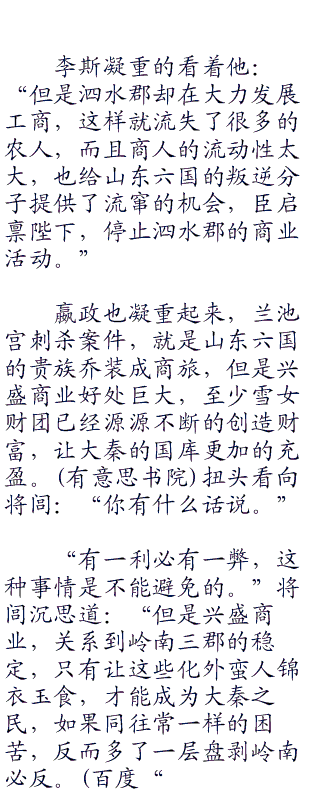 李斯凝重的看着他：
“但是泗水郡却在大力发展
工商，这样就流失了很多的
农人，而且商人的流动性太
大，也给山东六国的叛逆分
子提供了流窜的机会，臣启
禀陛下，停止泗水郡的商业
活动。”
嬴政也凝重起来，兰池
宫刺杀案件，就是山东六国
的贵族乔装成商旅，但是兴
盛商业好处巨大，至少雪女
财团已经源源不断的创造财
富，让大秦的国库更加的充
盈。(有意思书院)扭头看向
将闾：“你有什么话说。”
“有一利必有一弊，这
种事情是不能避免的。”将
闾沉思道：“但是兴盛商
业，关系到岭南三郡的稳
定，只有让这些化外蛮人锦
衣玉食，才能成为大秦之
民，如果同往常一样的困
苦，反而多了一层盘剥岭南
必反。(百度“